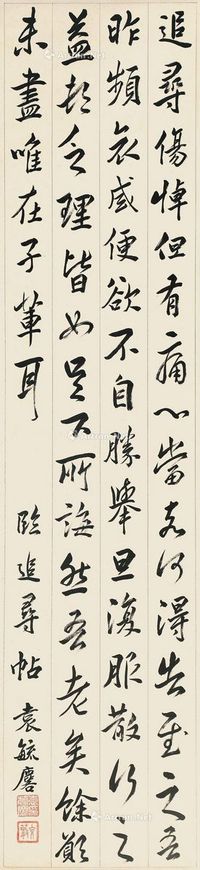 追尋傷悼但有痛心當奈何得告慰之吾
昨頻哀感便欲不自勝舉旦復服散行之
益頓乏理皆如足下所誨然吾老矣餘願
未盡唯在子輩耳
臨追尋帖 袁毓麐